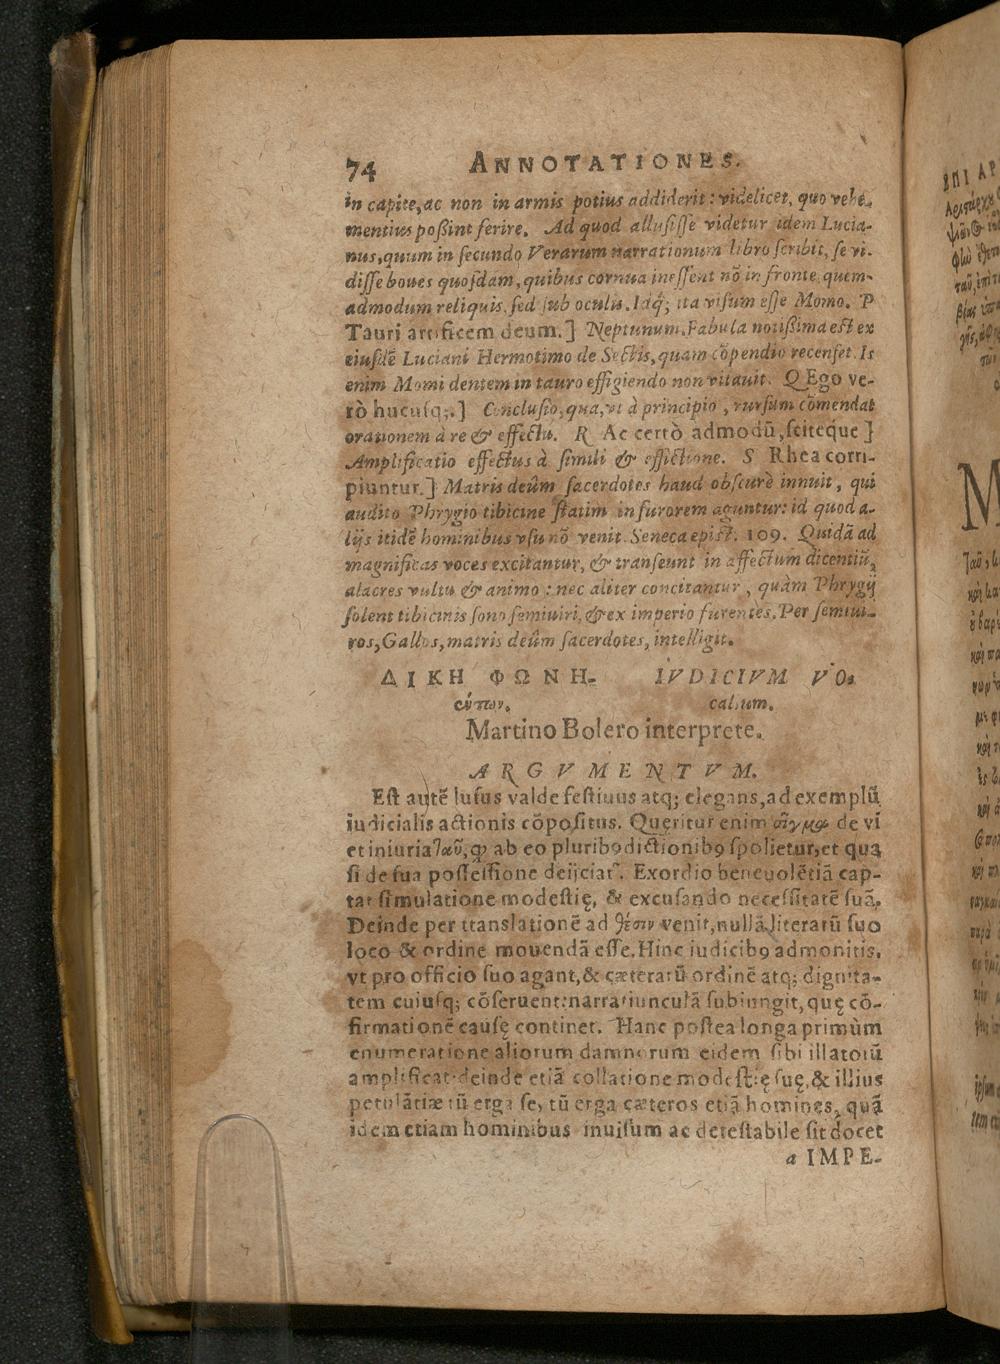 74 ANNOTATIONES.
in capite, ac non in armis potius addiderit: videlicet, quo vehe-
mentius poßint ferire. Ad quod allusisse videtur idem Lucia-
nus, quum in secundo Verarum narrationum libro scribit, se vi-
disse boues quosdam, quibus cornua inessent nō in fronte quem-
admodum reliquis, sed sub oculis. Idq́; ita visum esse Momo. P
Tauri artificem deum.] Neptunum. Fabula notißima est ex
eiusdē Luciani Hermotimo de Sectis, quam cōpendio recenset. Is
enim Momi dentem in tauro effigiendo non vitauit. Q Ego ve-
rò hucusq;.] Conclusio, qua, vt à principio, rursum cōmendat
orationem à re & effectu. R Ac certò admodū, sciteque]
Amplificatio effectus à simili & effictione. S Rhea corri-
piuntur.] Matris deûm sacerdotes haud obscurè innuit, qui
audito Phrygio tibicine statim in furorem aguntur: id quod a-
lijs itidē hominibus vsu nō venit. Seneca epist. 109. Quidā ad
magnificas voces excitantur, & transeunt in affectum dicentiū,
alacres vultu & animo: nec aliter concitantur, quàm Phrygij
solent tibicinis sono semiuiri, & ex imperio furentes. Per semiui-
ros, Gallos, matris deûm sacerdotes, intelligit.
ΔΙΚΗ ΦΩΝΗ- IVDICIVM VO-
έντων. calium.
Martino Bolero interprete.
ARGVMENTVM.
Est autē lusus valde festiuus atq; elegans, ad exemplū
iudicialis actionis cōpositus. Queritur enim σῖγμα de vi
et iniuria ταῦ, ꝙ ab eo pluribꝯ dictionibꝯ spolietur, et qua
si de sua possessione deijciat̃. Exordio beneuolētiā cap-
tat simulatione modestię, & excusando necessitatē suā.
Deinde per translationē ad θέσιν venit, nullā literarū suo
loco & ordine mouendā esse. Hinc iudicibꝯ admonitis,
vt pro officio suo agant, & cæterarū ordinē atq; dignita-
tem cuiusq; cōseruent: narratiunculā subiungit, quę cō-
firmationē causę continet. Hanc postea longa primùm
enumeratione aliorum damnorum eidem sibi illatorū
amplificat: deinde etiā collatione modestię suę, & illius
petulātiæ tū erga se, tū erga cæteros etiā homines, quā
idem etiam hominibus inuisum ac detestabile sit docet
a IMPE-